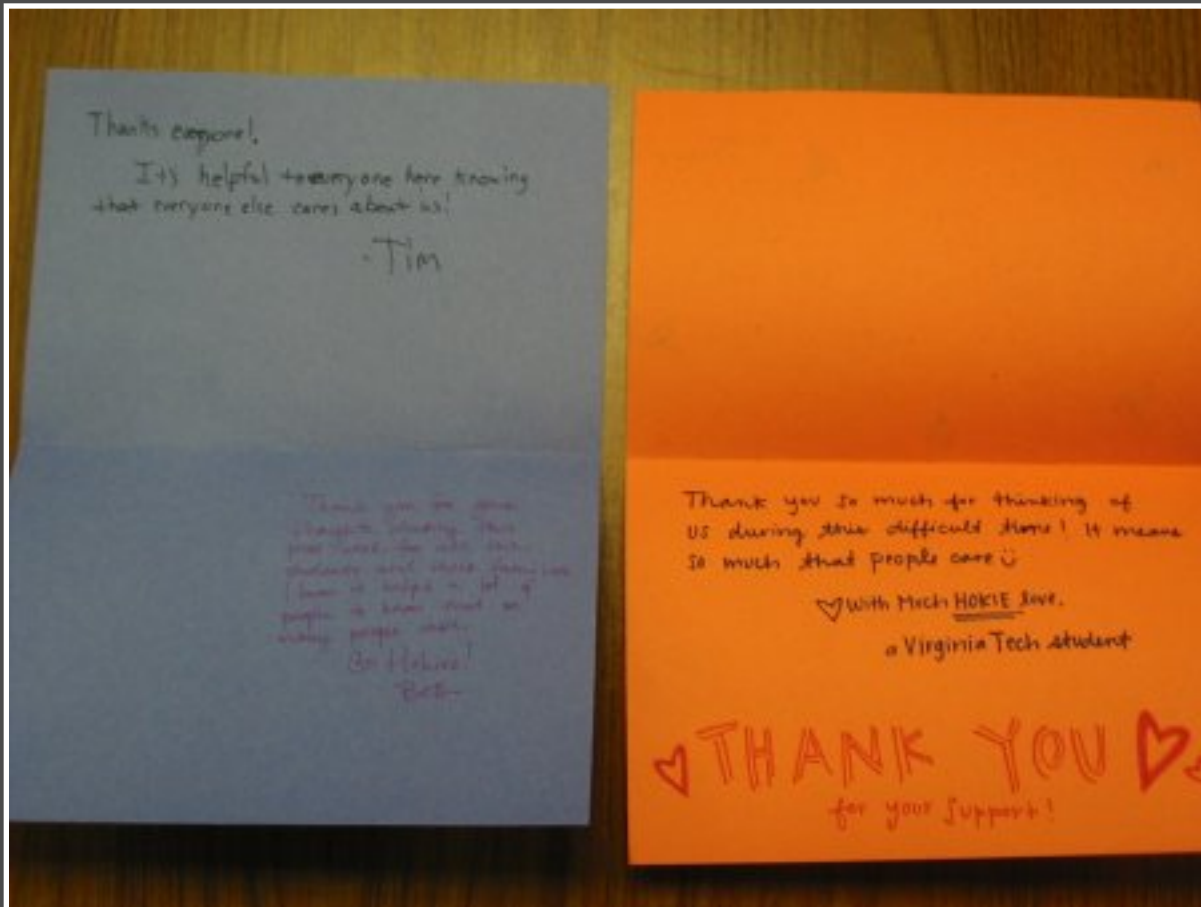 Thanks everyone!
It's helpful to everyone here knowing
that everyone else cares about us!
- Tim
Thank you for your
thoughts during this
for all the
students and those families
I know it helps a lot of
people to know that so
many people care.
Go Hokies!
Thank you so much for thinking of
us during this difficult time! It means
so much that people care
♡ With Much HOKIE love,
a Virginia Tech student
THANK YOU
for your support!